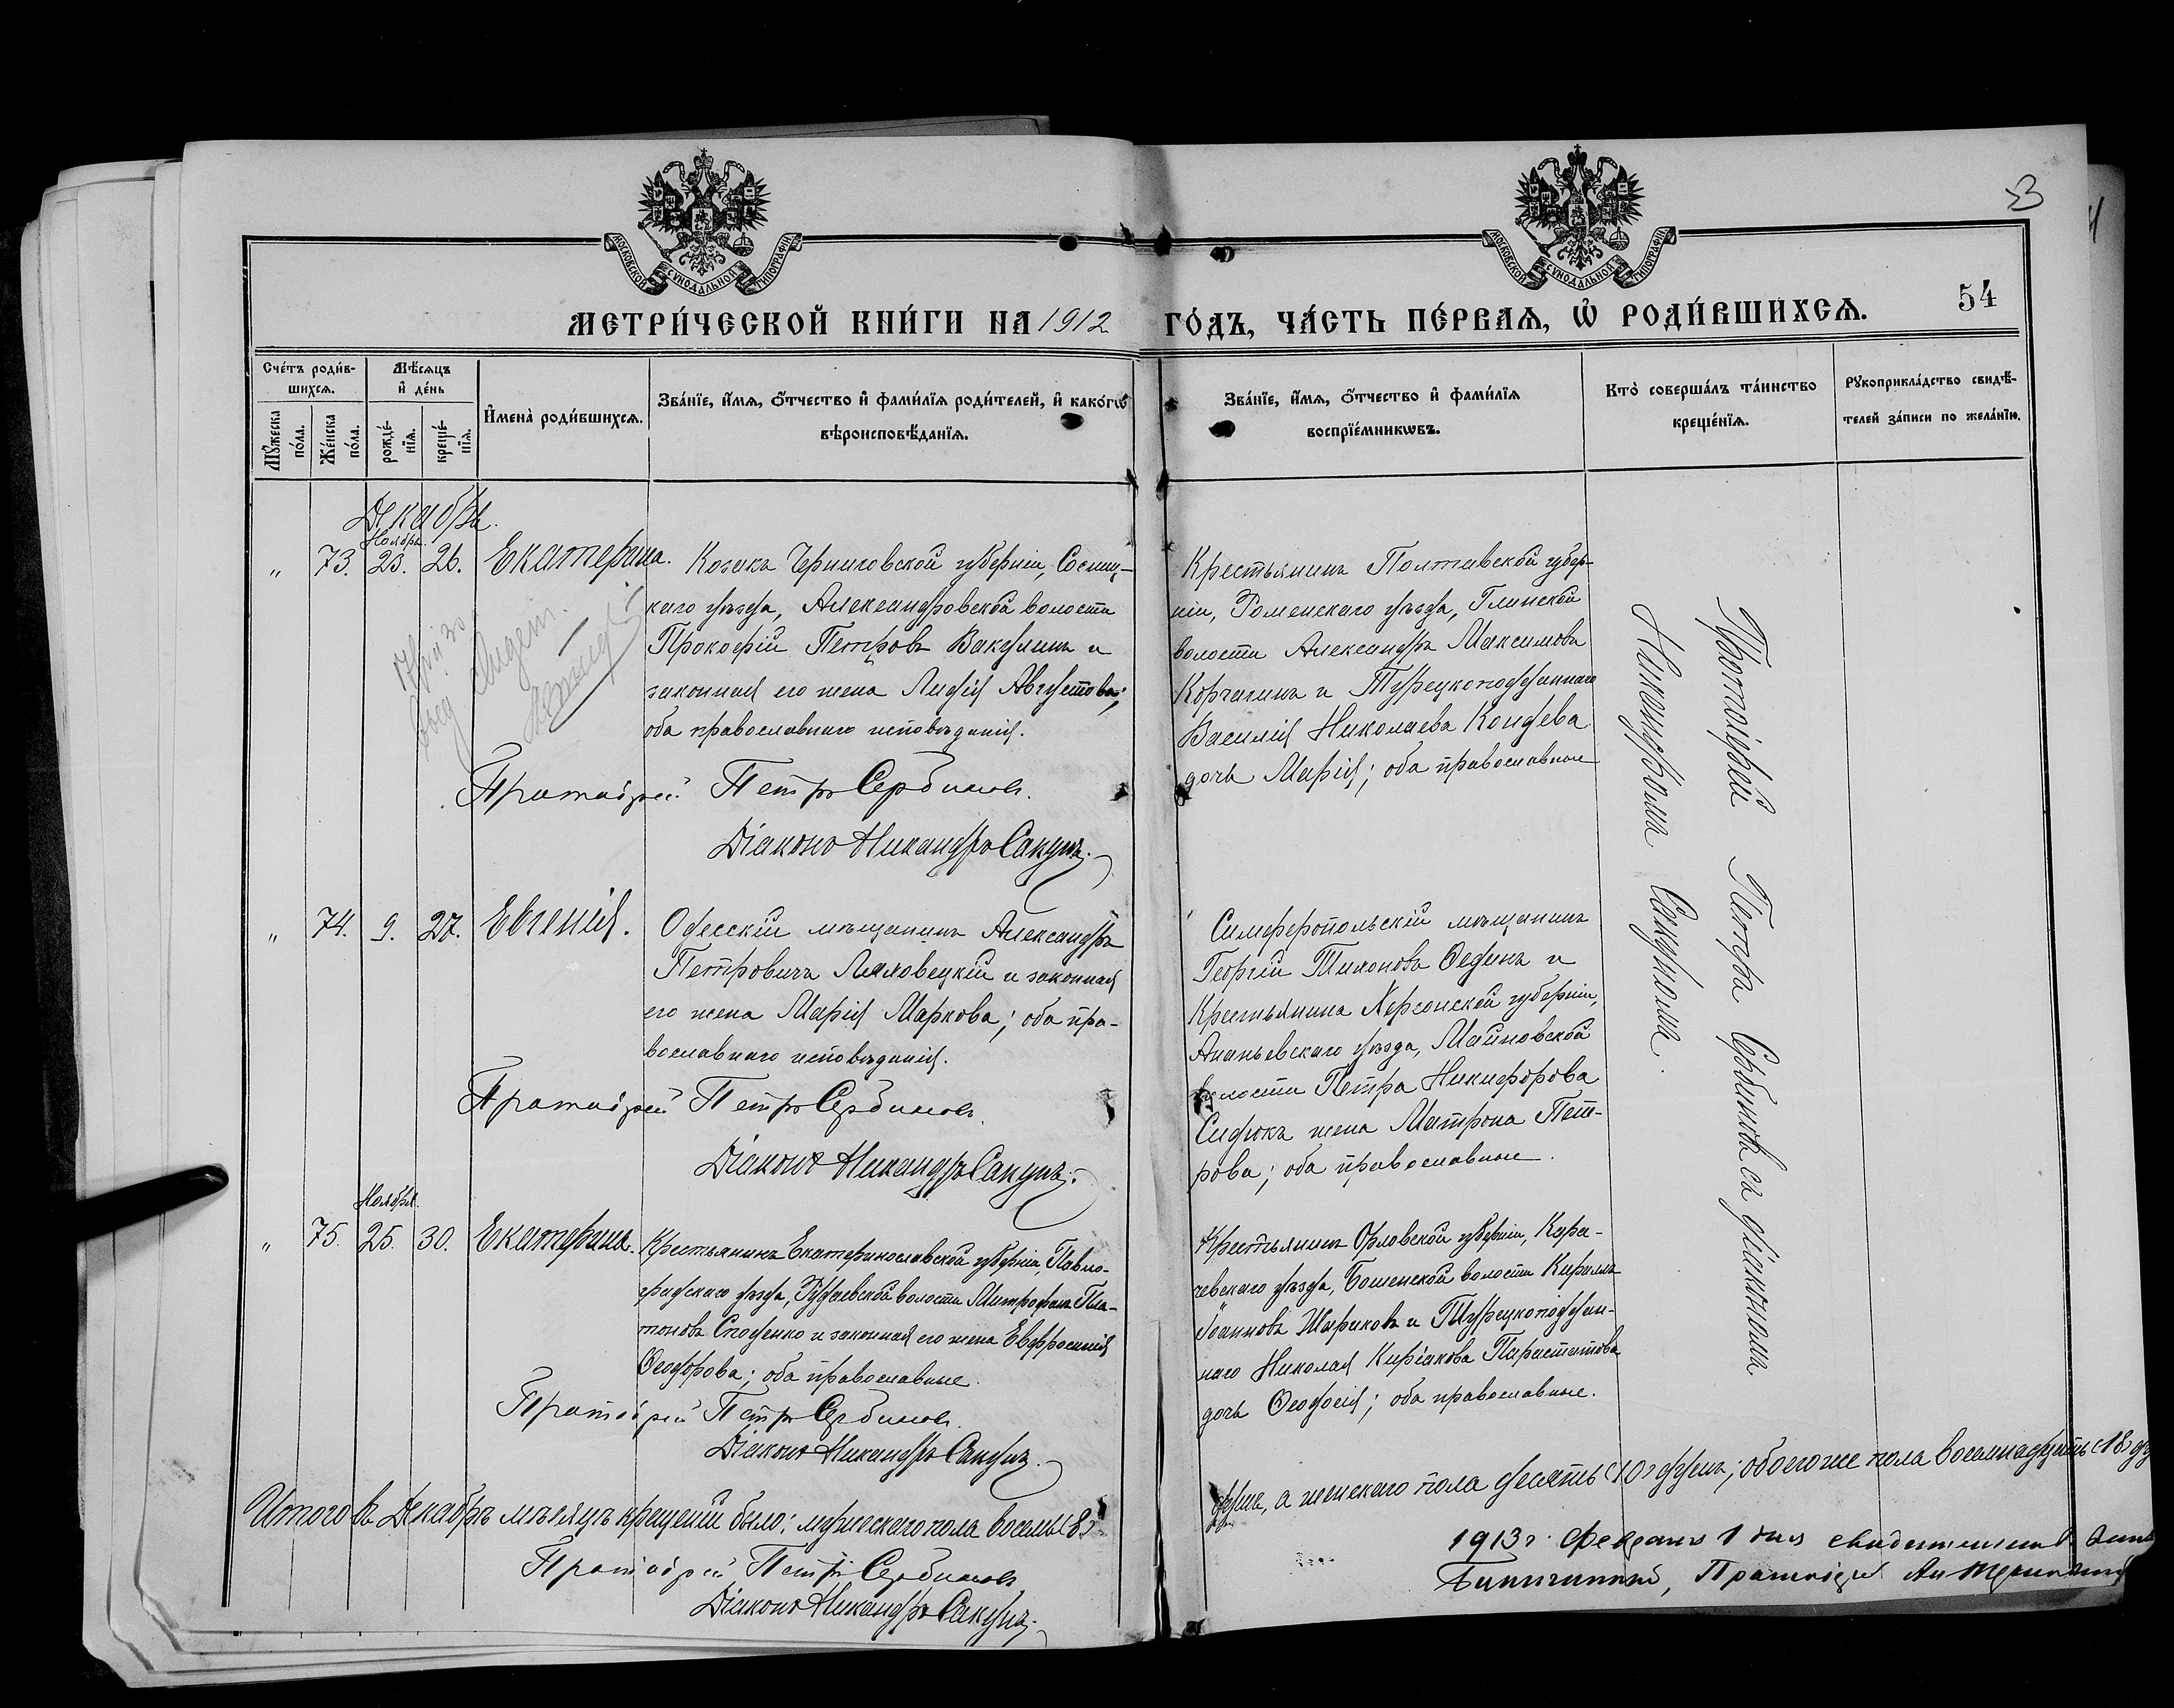 53
МОСКОВСКОЙ СѴНОДАЛЬНОЙ ТИПОГРАФІИ
МОСКОВСКОЙ СѴНОДАЛЬНОЙ ТИПОГРАФІИ
54
МЕТРИ́ЧЕСКОЙ КНИ́ГИ НА 1912 ГО́ДЪ, ЧА́СТЬ ПЕ́РВАѦ, Ѡ҆ РОДИ́ВШИХСѦ.
Сче́тъ роди́в-
шихсѧ.
Мѣ́сѧцъ
и҆ де́нь
Мꙋ́жеска
по́ла.
Же́нска
по́ла.
рожде́-
нїѧ.
креще́-
нїѧ.
И҆мена̀ роди́вшихсѧ.
Зва́нїе, и҆́мѧ, ѻ҆́тчество и҆ фами́лїѧ роди́телей, и҆ како́гѡ
вѣроисповѣ́данїѧ.
Зва́нїе, и҆́мѧ, ѻ҆́тчество и҆ фами́лїѧ
воспрїе́мникѡвъ.
Кто̀ соверша́лъ та́инство
креще́нїѧ.
Рꙋкоприкла́дство свидѣ́-
телей за́писи по жела́нїю.
Декабрь.
Ноября.
" 73. 23. 26. Екатерина.
Козакъ Черниговской губерніи, Сосниц-
каго уѣзда, Александровской волости
Прокофій Петровъ Вакулинъ и
законная его жена Лидія Августова;
оба православнаго исповѣданія.
Протоіерей Петръ Сербиновъ.
Діаконъ Никандръ Сакунъ.
Крестьянинъ Полтавской губер-
ніи, Роменскаго уѣзда, Глинской
волости Александръ Максимовъ
Корчагинъ и Турецкоподданнаго
Василія Николаева Кондева
дочь Марія; оба православные
Протоіерей Петръ Сербиновъ съ діакономъ
Никандромъ Сакуномъ.
" 74. 9. 27. Евгенія.
Одесскій мѣщанинъ Александръ
Петровичъ Ляховецкій и законная
его жена Марія Маркова; оба пра-
вославнаго исповѣданія.
Протоіерей Петръ Сербиновъ.
Діаконъ Никандръ Сакунъ.
Симферопольскій мѣщанинъ
Георгій Тихоновъ Ѳединъ и
Крестьянина Херсонской губерніи,
Ананьевскаго уѣзда, Майновской
волости Петра Никифорова
Сидюкъ жена Матрона Пет-
рова; оба православные.
Ноября.
" 75. 25. 30. Екатерина.
Крестьянинъ Екатеринославской губерніи, Павло-
градскаго уѣзда, волости Митрофанъ Пла-
тоновъ и законная его жена Евфросинія
Ѳеодорова; оба православные.
Протоіерей Петръ Сербиновъ.
Діаконъ Никандръ Сакунъ.
Крестьянинъ Орловской губерніи, Кара-
чевскаго уѣзда, Бошенской волости Кириллъ
Іоанновъ Шариковъ и Турецкоподдан-
наго Николая Киріакова
дочь Ѳеодосія; оба православные.
Итого въ Декабрѣ мѣсяцѣ крещеній было: мужескаго пола восемь (8)
душъ, а женскаго пола десять (10) душъ; обоего же пола восемнадцать (18) ду
Протоіерей Петръ Сербиновъ
Діаконъ Никандръ Сакунъ.
1913 г. февраля 1 дня